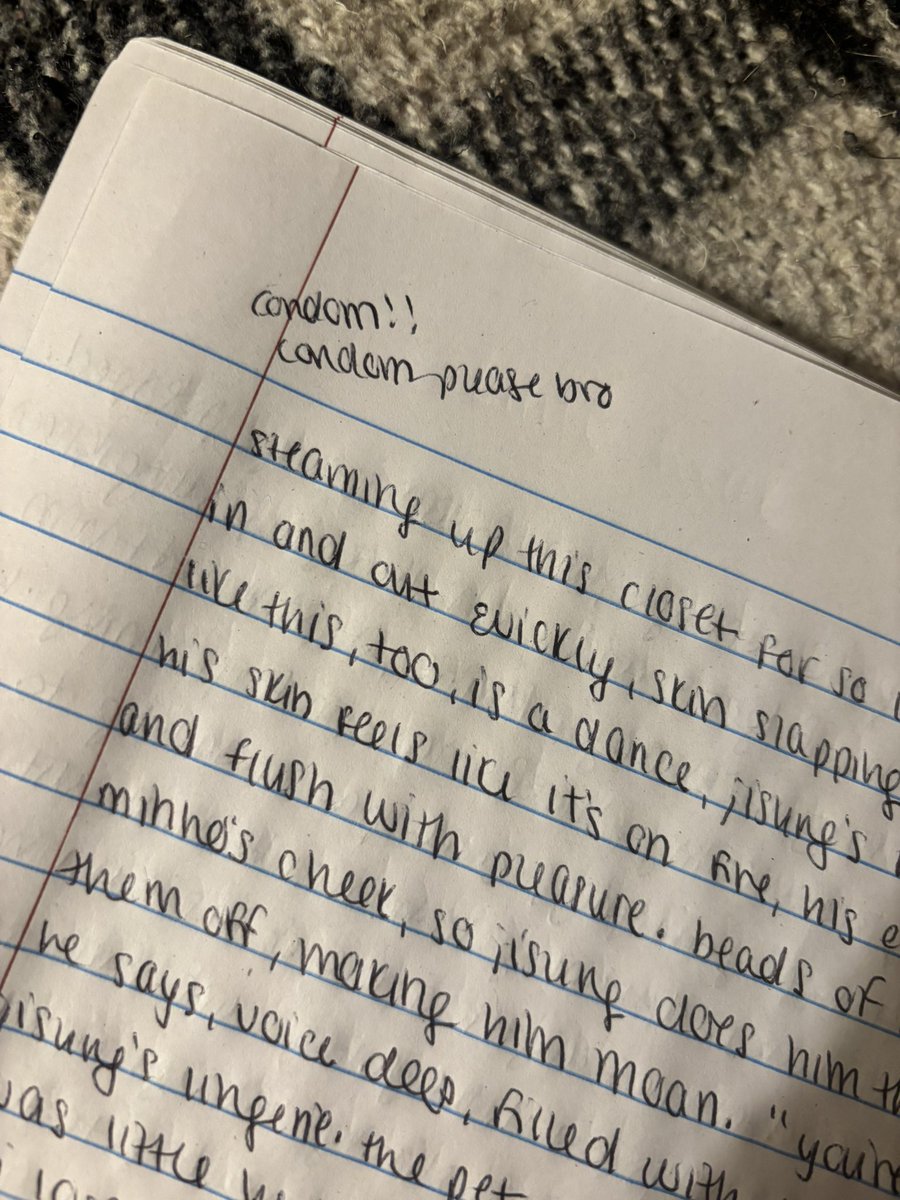 condom!!
condom please bro
steaming up this closet for so
in and out quickly, skin slapping
like this, too, is a dance, jisung's
his skin feels like it's on fire, his
and flush with pleasure. beads of
minho's cheek, so jisung does him
them off, making him moan. "you're
he says, voice deep, filled with
jisung's lingerie. the pet
was little